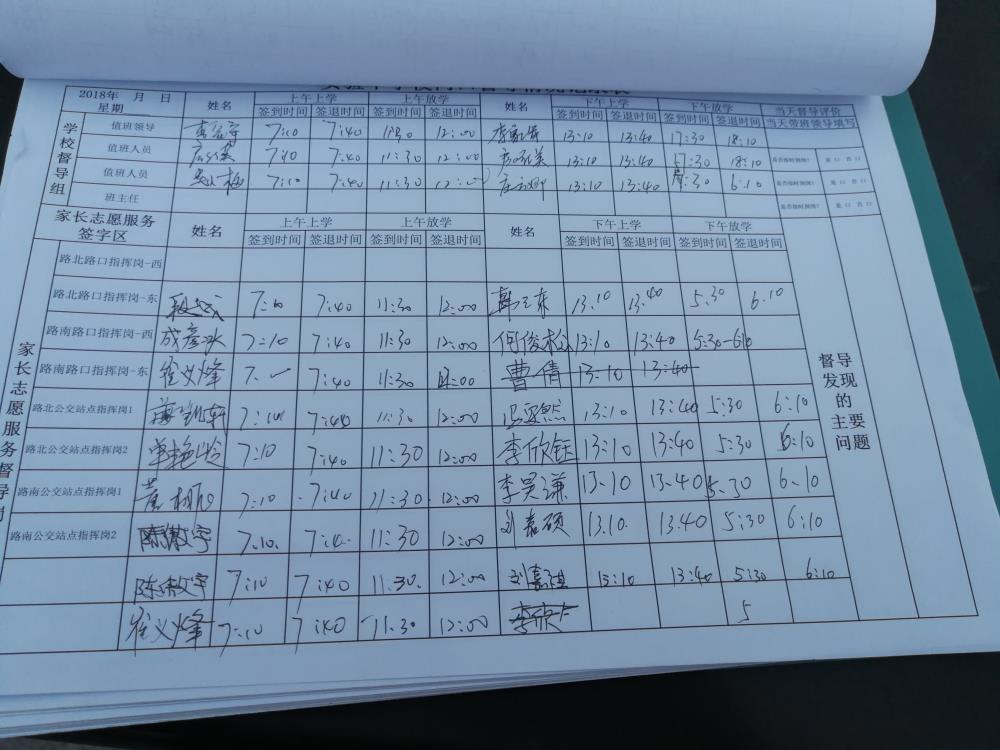 2018年 月 日
星期 姓名 上午上学 上午放学 姓名 下午上学 下午放学 当天督导评价
签到时间 签退时间 签到时间 签退时间 签到时间 签退时间 签到时间 签退时间 当天带班领导填写
学校督导组
值班领导 7:10 7:40 12:00 13:10 13:40 17:30 18:10
值班人员 7:10 7:40 11:30 12:00 13:10 13:40 17:30 18:10 是否按时到岗? 是 口 否 口
值班人员 7:10 7:40 11:30 12:00 13:10 13:40 5:30 6:10 是否按时到岗? 是 口 否 口
班主任 是否按时到岗? 是 口 否 口
家长志愿服务签字区 姓名 上午上学 上午放学 姓名 下午上学 下午放学
签到时间 签退时间 签到时间 签退时间 签到时间 签退时间 签到时间 签退时间
家长志愿服务督导岗
路北路口指挥岗-西
路北路口指挥岗-东 7:10 7:40 11:30 12:00 13:10 13:40 5:30 6:10
路南路口指挥岗-西 成彦冰 7:10 7:40 11:30 12:00 何俊松 13:10 13:40 5:30-6:10
路南路口指挥岗-东 崔义烽 7:40 11:30 12:00 曹倩 13:10 13:40
路北公交站点指挥岗1 7:10 7:40 11:30 12:00 13:10 13:40 5:30 6:10
路北公交站点指挥岗2 单艳玲 7:10 7:40 11:30 12:00 李欣钰 13:10 13:40 5:30 6:10
路南公交站点指挥岗1 7:10 7:40 11:30 12:00 李昊谦 13:10 13:40 5:30 6:10
路南公交站点指挥岗2 7:10 7:40 11:30 12:00 刘嘉硕 13:10 13:40 5:30 6:10
7:10 7:40 11:30 12:00 13:10 13:40 5:30 6:10
崔义烽 7:10 7:40 11:30 12:00 5
督导发现的主要问题